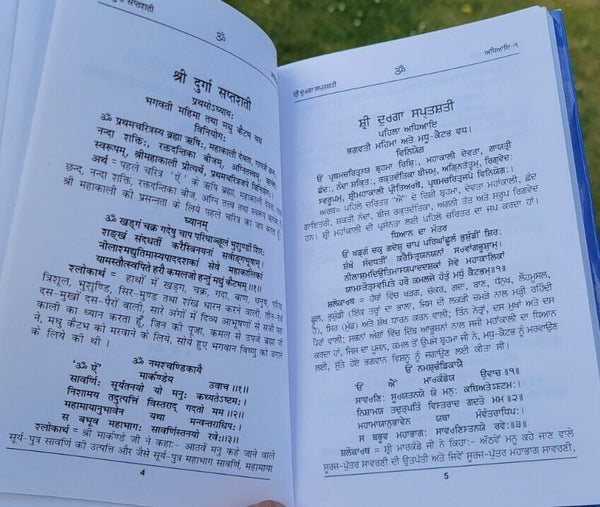 दुर्गा सप्तशती
ॐ
श्री दुर्गा सप्तशती
प्रथमोऽध्यायः
भगवती महिमा तथा मधु कैटभ वध
विनियोगः
ॐ प्रथमचरित्रस्य ब्रह्मा ऋषिः, महाकाली देवता, गायत्री
छन्द, नन्दा शक्तिः, रक्तदन्तिका बीजम्, अग्निस्तत्वम्,
स्वरूपम्, श्रीमहाकाली प्रीत्यर्थे, प्रथमचरित्रजपे विनियोगः।
अर्थ = पहले चरित्र 'ऐं' के ऋषि ब्रह्मा, महाकाली देवता,
छन्द, नन्दा शक्ति, रक्तदन्तिका बीज, अग्नि तत्व तथा स्वरूप
श्री महाकाली की प्रसन्नता के लिये पहले चरित्र का जप
ध्यानम्
ॐ खड्गं चक्र गदेषु चाप परिघाञ्छूलं भुशुण्डीं शिरः
शङ्खं संदधतीं करैस्त्रिनयनां सर्वाङ्गभूषावृताम्।
नीलाश्मद्युतिमास्यपाददशकां सेवे महाकालिकां
यामस्तौत्स्वपिते हरौ कमलजो हन्तुं मधुं कैटभम्॥१॥
श्लोकार्थ = हाथों में खड्ग, चक्र, गदा, बाण, धनुष, परिघ,
त्रिशूल, भुशुण्डि, सिर-मुण्ड तथा शंख धारण करने वाली तीन-नेत्रों
दस-मुखों दस-पैरों वाली, सारे अंगों में दिव्य आभूषणों से सजी
काली का ध्यान करता हूँ, जिन की पूजा, कमल से उपजे ब्रह्मा जी
ने, मधु कैटभ को मरवाने के लिये, सोये हुए भगवान विष्णु को जगाने
के लिये की थी।
ॐ नमश्चण्डिकायै
'ॐ ऐं' मार्कण्डेय उवाच॥१॥
सावर्णिः सूर्यतनयो यो मनुः कथ्यतेऽष्टमः।
निशामय तदुत्पत्तिं विस्तराद् गदतो मम॥२॥
महामायानुभावेन यथा मन्वन्तराधिपः।
स बभूव महाभागः सावर्णिस्तनयो रवेः॥३॥
श्लोकार्थ = श्री मार्कण्डे जी ने कहा:- आठवें मनु कहे जाने वाले
सूर्य-पुत्र सावर्णि की उत्पत्ति और जैसे सूर्य-पुत्र महाभाग सावर्णि, महामाया
4
ਸ਼੍ਰੀ ਦੁਰਗਾ ਸਪਤਸ਼ਤੀ
ॐ
ਅਧਿਆਇ-੧
ਸ਼੍ਰੀ ਦੁਰਗਾ ਸਪਤਸ਼ਤੀ
ਪਹਿਲਾ ਅਧਿਆਇ
ਭਗਵਤੀ ਮਹਿਮਾ ਅਤੇ ਮਧੁ-ਕੈਟਭ ਵਧ।
ਵਿਨਿਯੋਗ
ਓਂ ਪ੍ਰਥਮਚਰਿਤ੍ਰਸਯ ਬ੍ਰਹਮਾ ਰਿਸ਼ਿ:, ਮਹਾਕਾਲੀ ਦੇਵਤਾ, ਗਾਯਤ੍ਰੀ
ਛੰਦ:, ਨੰਦਾ ਸ਼ਕਤਿ:, ਰਕਤਦੰਤਿਕਾ ਬੀਜਮ੍, ਅਗ੍ਨਿਤਤ੍ਵਮ੍, ਰਿਗ੍ਵੇਦ:
ਸ੍ਵਰੂਪਮ੍, ਸ਼੍ਰੀਮਹਾਕਾਲੀ ਪ੍ਰੀਤਿਅਰਥੇ, ਪ੍ਰਥਮਚਰਿਤ੍ਰਜਪੇ ਵਿਨਿਯੋਗ:।
ਅਰਥ= ਪਹਿਲੇ ਚਰਿਤਰ 'ਐਂ' ਦੇ ਰਿਸ਼ੀ ਬ੍ਰਹਮਾ, ਦੇਵਤਾ ਮਹਾਂਕਾਲੀ, ਛੰਦ
ਗਾਇਤਰੀ, ਸ਼ਕਤੀ ਨੰਦਾ, ਬੀਜ ਰਕਤਦੰਤਿਕਾ, ਅਗਨੀ ਤੱਤ ਅਤੇ ਸਰੂਪ ਰਿਗਵੇਦ
ਹਨ। ਸ਼੍ਰੀ ਮਹਾਂਕਾਲੀ ਦੀ ਪ੍ਰਸੰਨਤਾ ਲਈ ਪਹਿਲੇ ਚਰਿਤਰ ਦਾ ਜਪ ਕਰਦਾ ਹਾਂ।
ਧਿਆਨ ਦਾ ਮੰਤਰ
ਓਂ ਖੜਗੰ ਚਕ੍ਰ ਗਦੇਸ਼ੁ ਚਾਪ ਪਰਿਘਾਂਛੂਲੰ ਭੁਸ਼ੁੰਡੀਂ ਸ਼ਿਰ:
ਸ਼ੰਖੰ ਸੰਦਧਤੀਂ ਕਰੈਸ੍ਤ੍ਰਿਨਯਨਾਂ ਸਰਵਾਂਗਭੂਸ਼ਾਵ੍ਰਿਤਾਮ੍।
ਨੀਲਾਸ਼੍ਮਦਿਯੁਤਿਮਾਸਯਪਾਦਦਸ਼ਕਾਂ ਸੇਵੇ ਮਹਾਕਾਲਿਕਾਂ
ਯਾਮਸਤੌਤ੍ਸਵਪਿਤੇ ਹਰੌ ਕਮਲਜੋ ਹੰਤੁੰ ਮਧੁੰ ਕੈਟਭਮ੍॥੧॥
ਸ਼ਲੋਕਾਰਥ= ਹੱਥਾਂ ਵਿੱਚ ਖੜਗ, ਚੱਕਰ, ਗਦਾ, ਬਾਣ, ਧੌਣੁਖ, ਲੋਹਮੂਸਲ,
ਸੂਲ, ਭੁਸ਼ੁੰਡੀ (ਇੱਕ ਤਰ੍ਹਾਂ ਦਾ ਭਾਲਾ, ਜਿਸ ਦੀ ਲਕੜੀ ਚਮੜੇ ਨਾਲ ਮੜ੍ਹੀ ਰਹਿੰਦੀ
ਹੈ), ਸਿਰ (ਮੁੰਡ) ਅਤੇ ਸ਼ੰਖ ਧਾਰਨ ਕਰਨ ਵਾਲੀ, ਤਿੰਨ ਨੇਤ੍ਰਾਂ, ਦਸ ਮੁੱਖਾਂ ਅਤੇ ਦਸ
ਪੈਰਾਂ ਵਾਲੀ; ਸਭਨਾਂ ਅੰਗਾਂ ਵਿੱਚ ਦਿੱਬ ਆਭੂਸ਼ਨਾਂ ਨਾਲ ਸਜੀ ਮਹਾਂਕਾਲੀ ਦਾ ਧਿਆਨ
ਕਰਦਾ ਹਾਂ, ਜਿਸ ਦਾ ਪੂਜਨ, ਕਮਲ ਤੋਂ ਉਪਜੇ ਬ੍ਰਹਮਾ ਜੀ ਨੇ, ਮਧੁ-ਕੈਟਭ ਨੂੰ ਮਰਵਾਉਣ
ਲਈ, ਸੁੱਤੇ ਹੋਏ ਭਗਵਾਨ ਵਿਸ਼ਨੂੰ ਨੂੰ ਜਗਾਉਣ ਲਈ ਕੀਤਾ ਸੀ।
ਓਂ ਨਮਸ਼੍ਚੰਡਿਕਾਯੈ
ਓਂ ਐਂ ਮਾਰਕੰਡੇਯ ਉਵਾਚ॥੧॥
ਸਾਵਰਣਿ: ਸੂਰਯਤਨਯੋ ਯੋ ਮਨੁ: ਕਥਿਅਤੇऽਸ਼ਟਮ:।
ਨਿਸ਼ਾਮਯ ਤਦੁਤਪੱਤਿੰ ਵਿਸਤਰਾਦ ਗਦਤੋ ਮਮ॥੨॥
ਮਹਾਮਾਯਾਨੁਭਾਵੇਨ ਯਥਾ ਮੰਵੰਤਰਾਧਿਪ:।
ਸ ਬਭੂਵ ਮਹਾਭਾਗ: ਸਾਵਰਣਿਸਤਨਯੋ ਰਵੇ:॥੩॥
ਸ਼ਲੋਕਾਰਥ= ਸ਼੍ਰੀ ਮਾਰਕੰਡੇ ਜੀ ਨੇ ਕਿਹਾ:- ਅੱਠਵੇਂ ਮਨੂ ਕਹੇ ਜਾਣ ਵਾਲੇ
ਸੂਰਜ-ਪੁੱਤਰ ਸਾਵਰਣੀ ਦੀ ਉਤਪੱਤੀ ਅਤੇ ਜਿਵੇਂ ਸੂਰਜ-ਪੁੱਤਰ ਮਹਾਭਾਗ ਸਾਵਰਣੀ,
5